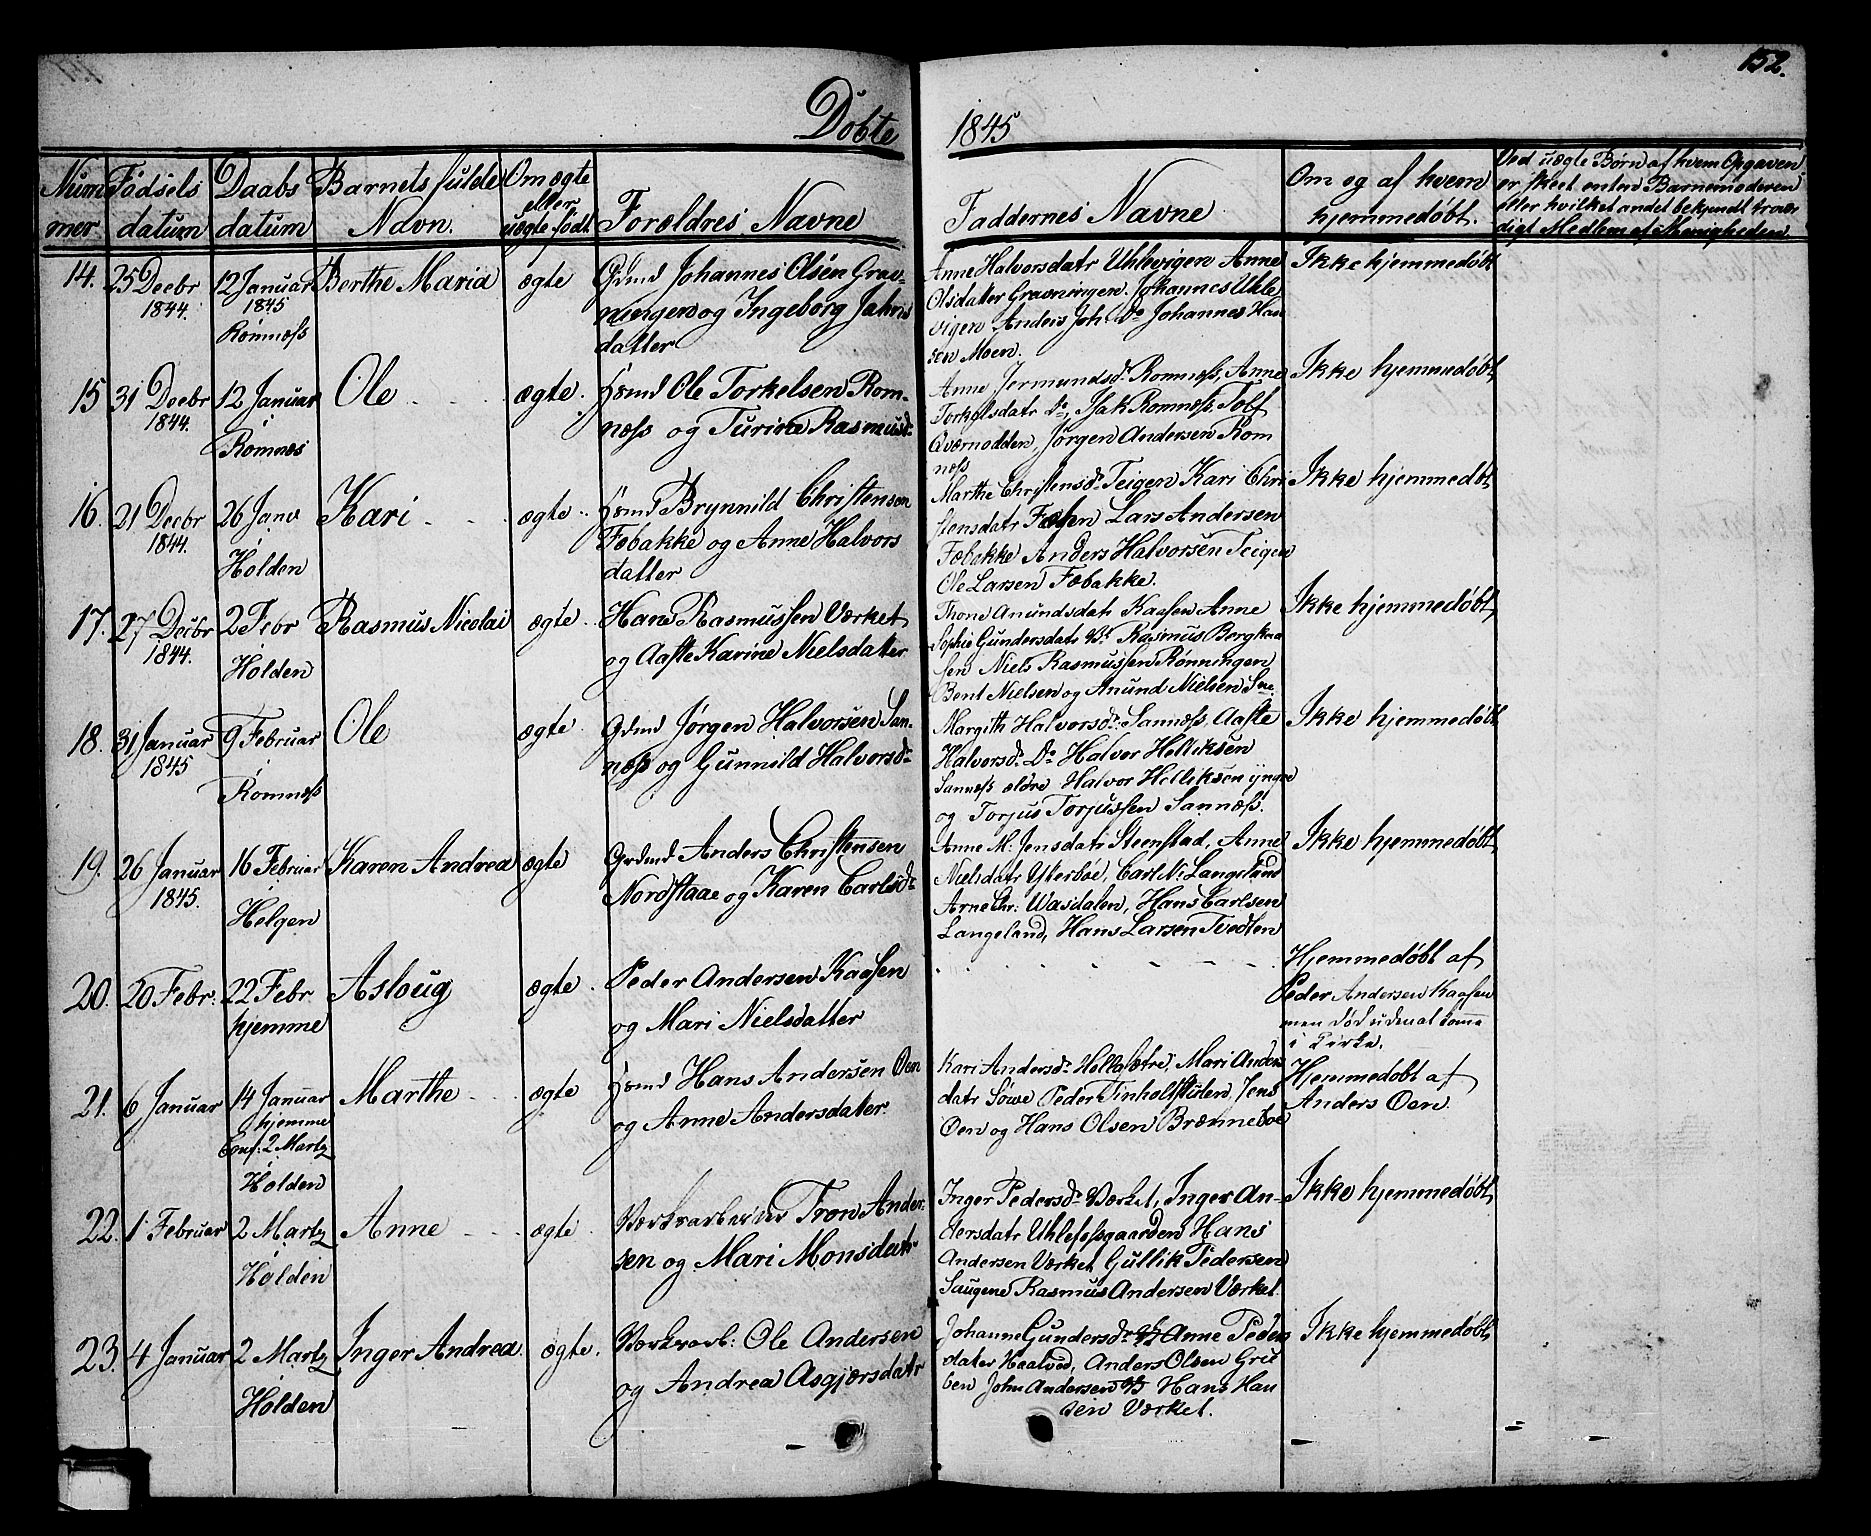 152.
Döbte 1845
Nummer
Födsels datum
Daabs datum
Barnets fulde Navn.
Om ægte eller uægte født
Forældres Navne
Faddernes Navne
Om og af hvem hjemmedøbt.
Ved uægte Børn af hvem Opgaven
er skeet enten Barnemoderen
eller hvilket andet bekjendt trovær
digt Medlem af Menigheden.
14.
25 Decbr
1844.
12 Januar
1845
Romnæss
Berthe Maria
ægte
Grdmd Johannes Olsen Grav-
ningen og Ingeborg Jahns
datter
Anne Halvorsdatr Uhlevigen Anne
Olsdatter Gravningen. Johannes Uhle
vigen Anders Joh Do Johannes Han
sen Moen.
Ikke hjemmedøbt
15
31 Decbr
1844.
12 Januar
Romnæs
Ole
ægte.
Hsmd Ole Torkelsen Rom-
næss og Turine Rasmusd.
Anne Jermundsdr Romnæss, Anne
Torkelsdatr Do, Isak Romnæss Tolf
Qværnodden, Jörgen Andersen Rom
næss
Ikke hjemmedøbt
16.
21 Decbr
1844.
26 Janr
Holden
Kari
ægte
Hsmd Brynnild Christensen
Fæbakke og Anne Halvors
datter
Marthe Christensdr Teigen Kari Chri
stensdatr Fæhn Lars Andersen
Fæbakke Anders Halvorsen Teigen
Ole Larsen Fæbakke.
Ikke hjemmedøbt
17.
27 Decbr
1844.
2 Febr
Holden
Rasmus Nicolai
ægte.
Hans Rasmussen Værket
og Aaste Karine Nielsdatter
Thone Anundsdatr Kaasen Anne
Sophie Gundersdatr Rasmus Berg
sen Niels Rasmussen Rønningen
Bent Nielsen og Anund Nielsen
Ikke hjemmedøbt
18.
31 Januar
1845
9 Februar
Romnæss
Ole
ægte.
Grdmd Jørgen Halvorsen San-
næss og Gunnild Halvorsdr
Margith Halvorsdr Sannæss, Aaste
Halvorsdr Do Halvor Helliksen
Sannæss ældre Halvor Helliksen yngre
og Torjus Torjussen Sannæss.
Ikke hjemmedøbt
19.
26 Januar
1845.
16 Februar
Helgen
Karen Andrea
ægte
Grdmd Anders Christensen
Nordstaae og Karen Carlsdr
Anne M. Jensdatr Steenstad, Anne
Nielsdatr Ytterbøe, Carl N. Langeland
Arne Chr: Wasdalen, Hans Carlsen
Langeland, Hans Larsen Tvedten
Ikke hjemmedøbt
20.
20 Febr.
22 Febr
hjemme
Asloug
ægte.
Peder Andersen Kaasen
og Mari Nielsdatter
Hjemmedøbt af
Peder Andersen Kaasen
men død uden at komme
i Kirke.
21.
6 Januar
14 Januar
hjemme
Conf: 2 Martz
Holden
Marthe
ægte
Hsmd Hans Andersen Oen
og Anne Andersdater
Kari Andersdr Hellesætre, Mari Anders
datr Søwe Peder Tinholtstulen, Jens
Oen og Hans Olsen Brænneboe
Hjemmedøbt af
Anders Oen
22.
1 Februar
2 Martz
Holden
Anne
ægte.
Værksarbeider Tron Ander-
sen og Mari Monsdatr
Inger Pedersdr Værket, Inger An-
dersdatr Uhlefossgaarden Hans
Andersen Værket Gullik Pedersen
Saugene Rasmus Andersen Værket
Ikke hjemmedøbt
23.
4 Januar
2 Martz
Holden
Inger Andrea
ægte.
Værksarb: Ole Andersen
og Andrea Asgjersdatr
Johanne Gundersdr Anne Peders
dater Haatved, Anders Olsen Grie
ben John Andersen Hans Han
sen Værket.
Ikke hjemmedøbt